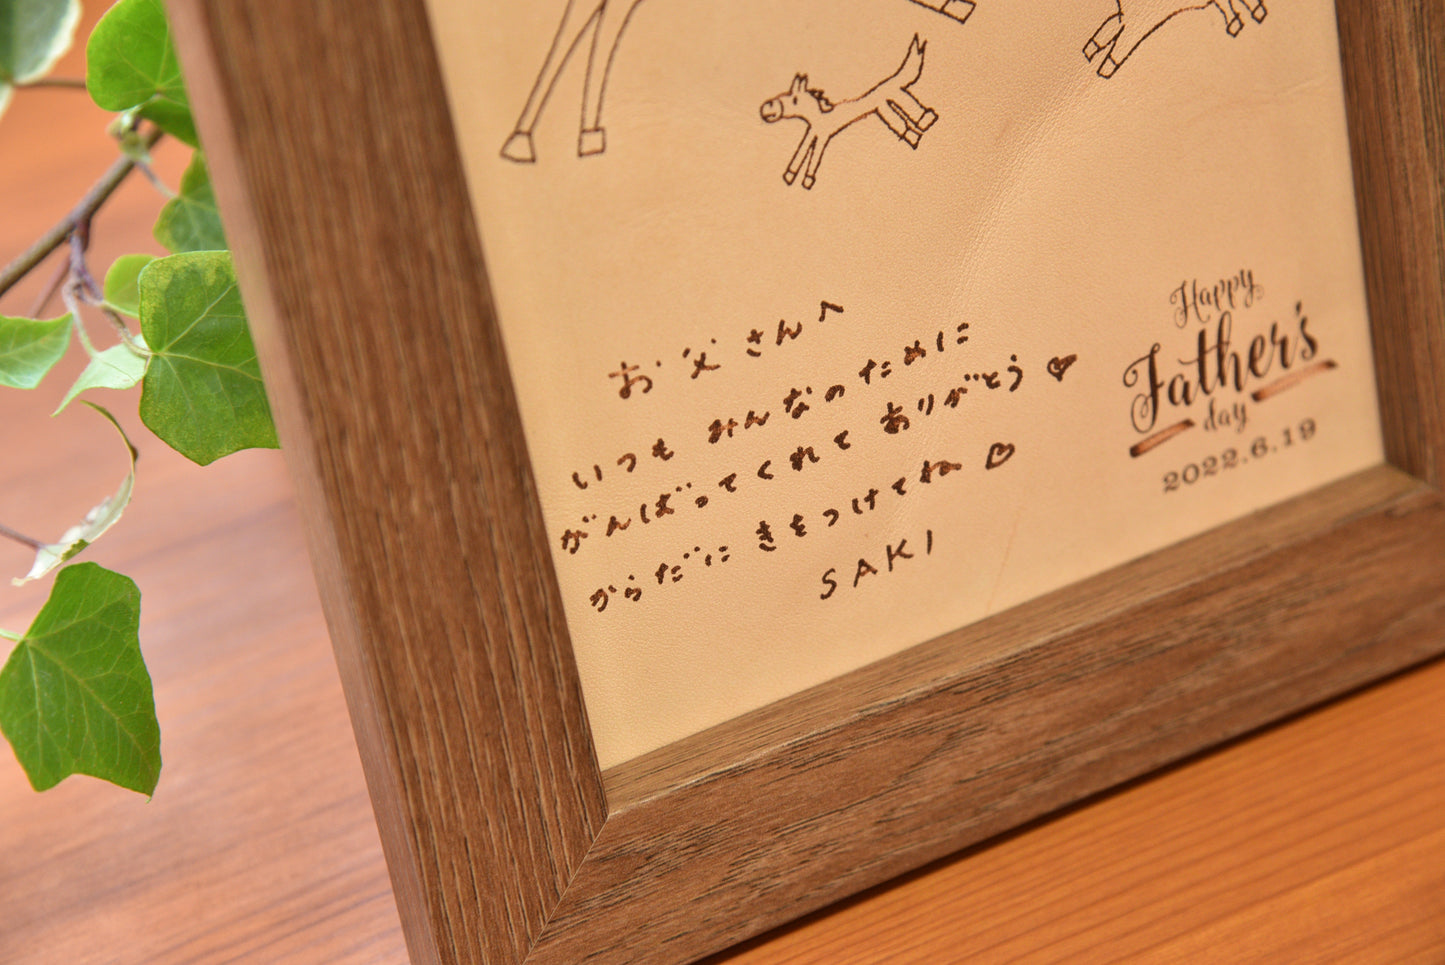 お父さんへ
いつも みんなのために
がんばってくれて ありがとう♥
からだに きをつけてね♡
SAKI
Happy
Father's
day
2022.6.19